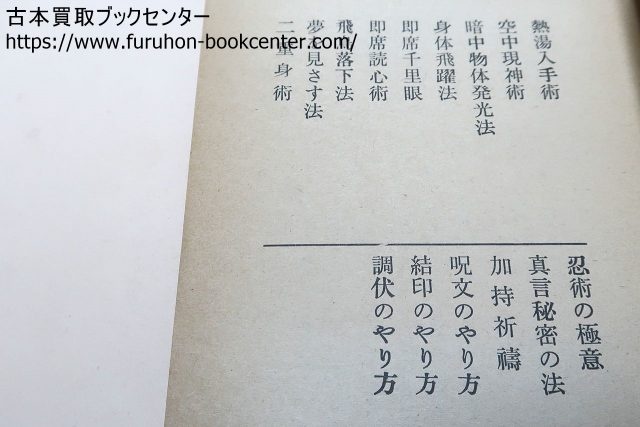 古本買取ブックセンター
https://www.furuhon-bookcenter.com/
熱湯入手術
空中現神術
暗中物体発光法
身体飛躍法
即席千里眼
即席読心術
飛鳥落下法
夢を見さす法
二重身術
忍術の極意
真言秘密の法
加持祈禱
呪文のやり方
結印のやり方
調伏のやり方